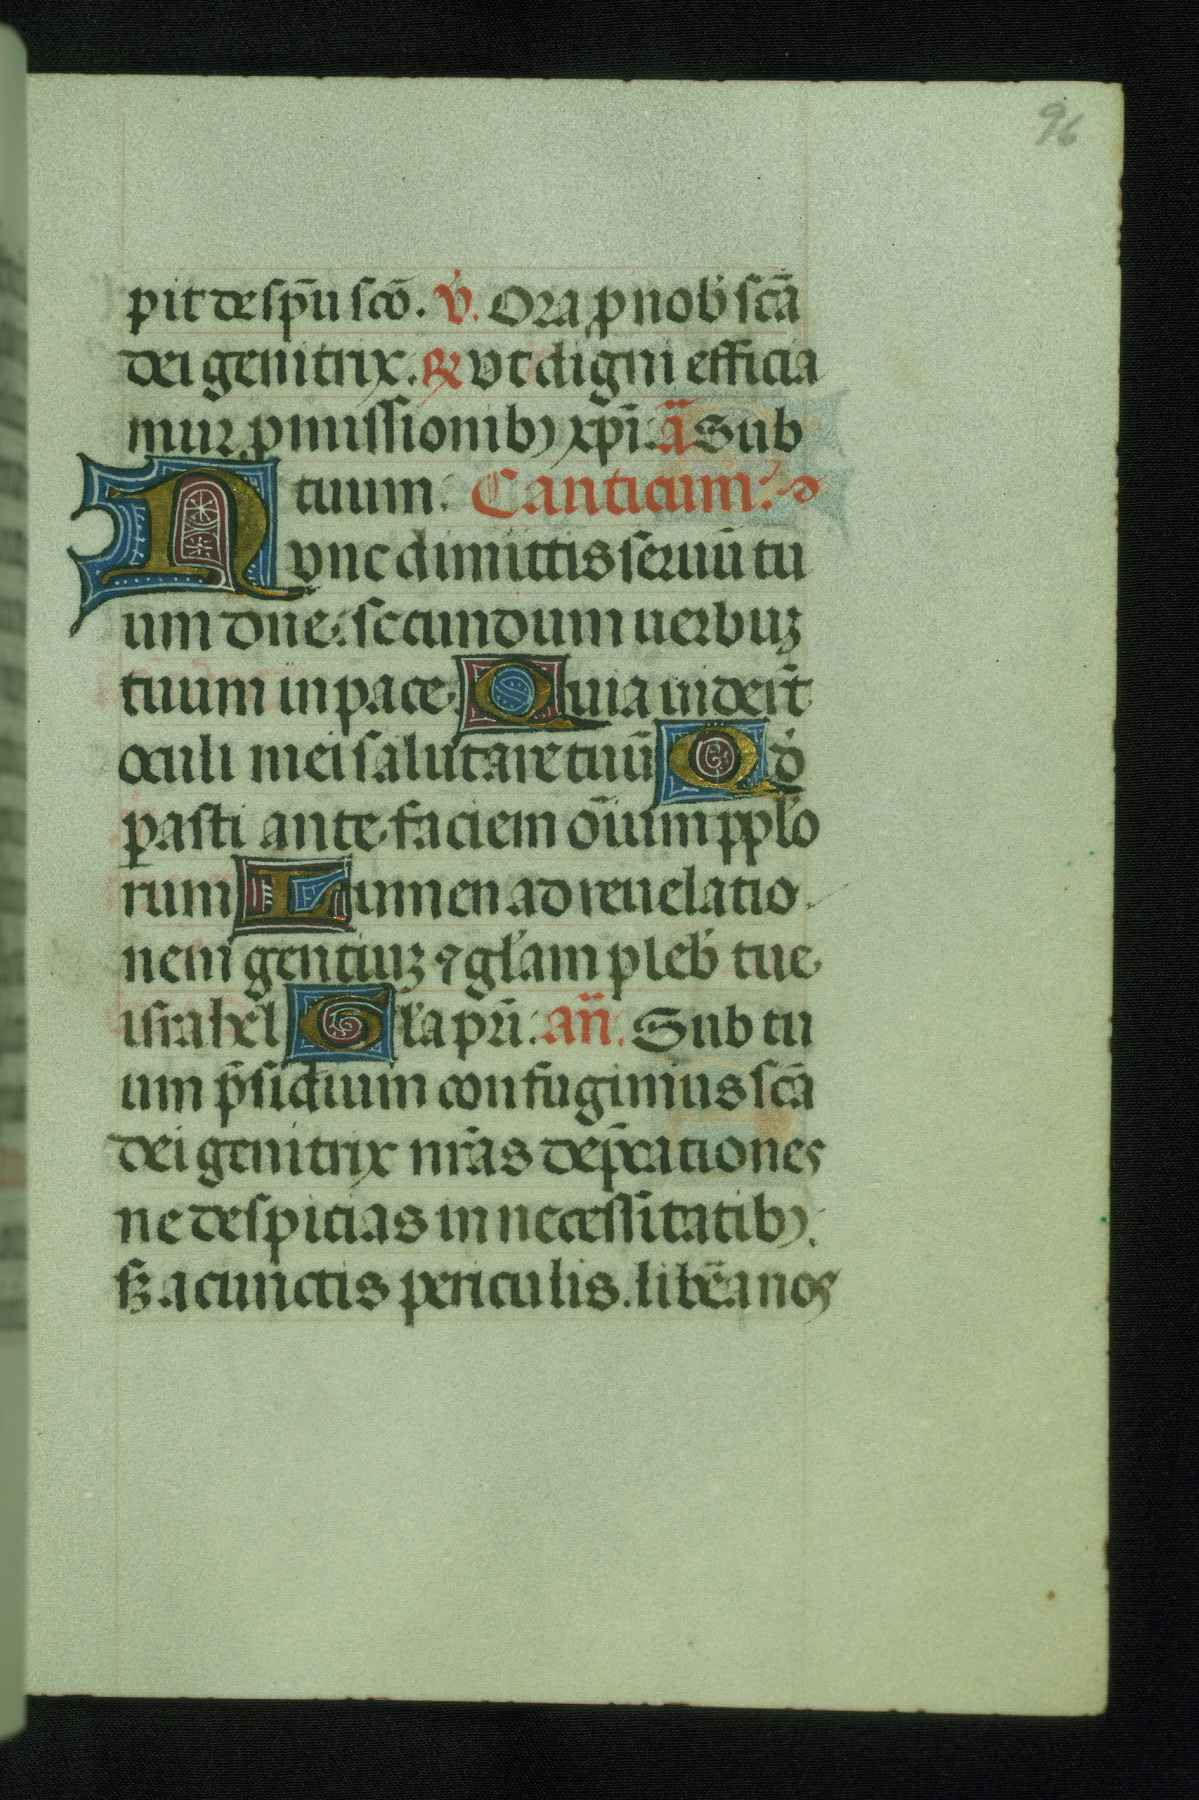 96
pit de sp̄u sc̄o. V̇. Ora ꝓ nob̉ sc̄a
dei genitrix. ℞ Vt digni efficia
mur ꝓmissionibꝫ xp̄i. ā Sub
tuum. Canticum.
Nvnc dimittis seruū tu
um dn̄e: secundum uerbuꝫ
tuum in pace. Quia uider̄t
oculi mei salutare tuū Qđ
ꝑasti ante faciem oīum pp̄lo
rum Lumen ad reuelatio
nem gentiuꝫ ⁊ gl̄am pleb̉ tue
israhel Gl̄a pr̄i. an̄. Sub tu
um p̄sidium confugimus sc̄a
dei genitrix nr̄as dep̄cationes
ne despicias in necessitatibꝫ.
sꝫ a cunctis periculis. lib̄ea nos